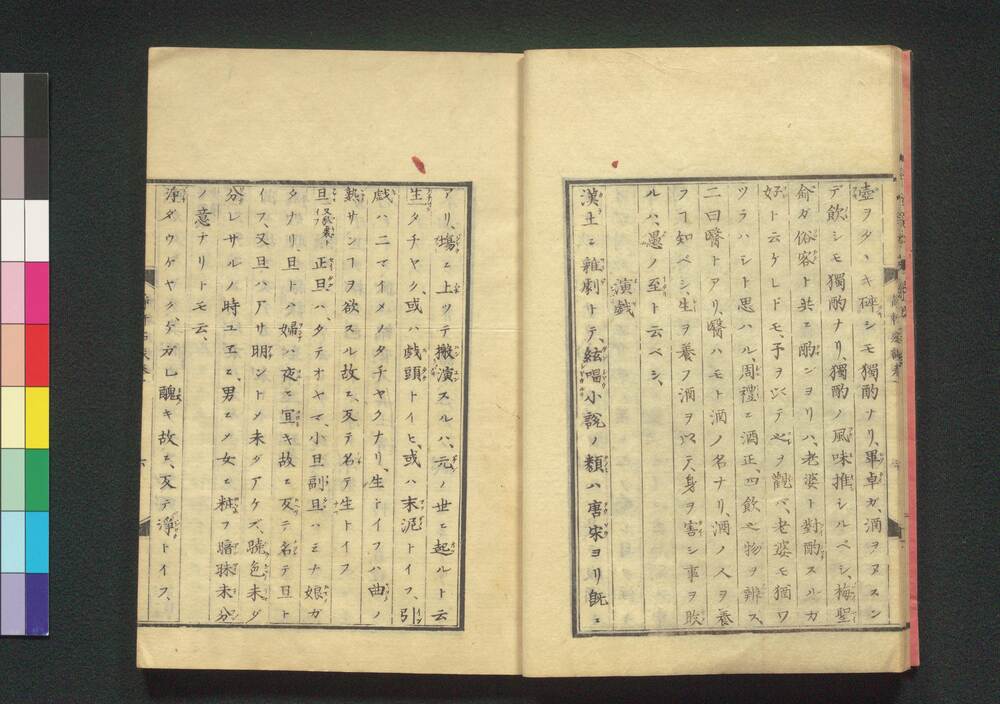 壺ヲタヽキ碎シモ獨酌ナリ、畢卓ガ、酒ヲヌスン
デ飲シモ獨酌ナリ、獨酌ノ風味推シルベシ、梅聖
俞ガ俗客ト共ニ酌ンヨリハ、老婆ト對酌スルガ
好ト云ケレドモ、予ヲ以テ之ヲ觀バ、老婆モ猶ワ
ツラハシト思ハル、周禮ニ酒正、四飲之物ヲ辨ス、
二曰醫トアリ、醫ハモト酒ノ名ナリ、酒ノ人ヲ養
フヿ知ベシ、生ヲ養フ酒ヲ以テ、身ヲ害シ事ヲ敗
ルハ、愚ノ至ト云ベシ、
演戯
漢土ニ雜劇トテ、絃唱小説ノ類ハ唐宋ヨリ既ニ
アリ、塲ニ上ツテ搬演スルハ、元ノ世ニ起ルト云
生タチヤク、或ハ戯頭トイヒ、或ハ末泥トイフ、引
戯ハニマイメノタチヤクナリ、生トイフハ曲ノ
熟サンヿヲ欲スル故ニ、反テ名テ生トイフ
旦又裝旦トイフ正旦ハ、タテオヤマ、小旦副旦ハミナ娘ガ
タナリ、旦トハ婦ハ夜ニ宜キ故ニ反テ名テ旦ト
イフ、又旦ハアサ明ントメ未ダアケズ、曉色未ダ
分レサルノ時ユエニ、男ニメ女ニ粧フ曖昧未分
ノ意ナリトモ云、
淨ダウケヤクゲガレ醜キ故ニ、反テ淨トイフ、